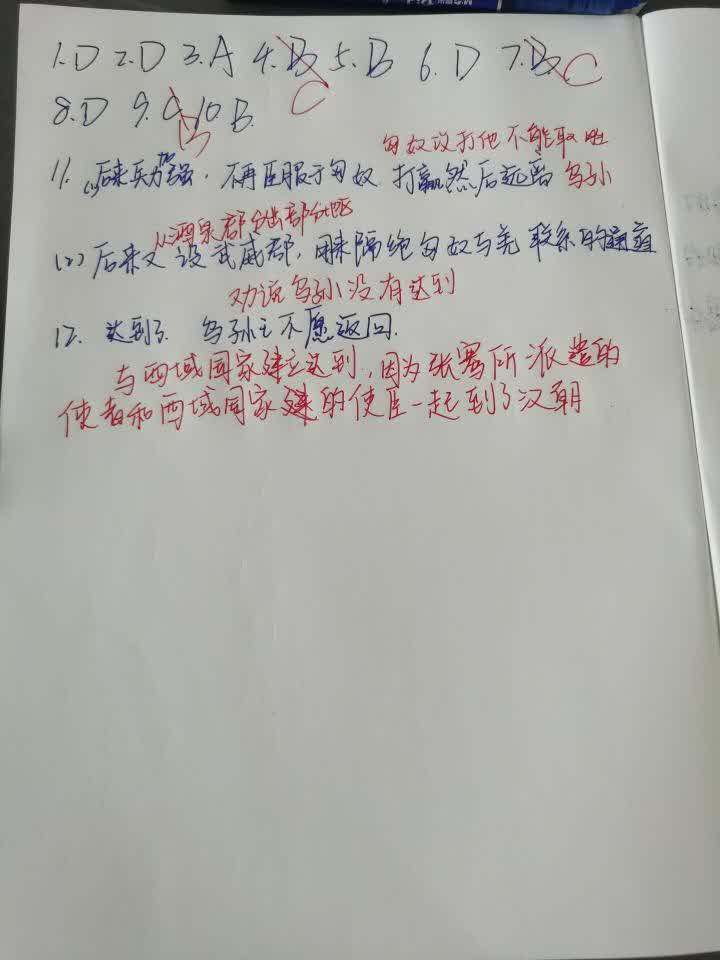 1.D 2.D 3.A 4.B 5.B 6.D 7.B C
C
8.D 9.C 10.B.
B
匈奴攻打他不能取胜
11. (1)后来兵力强，不再臣服于匈奴 打赢然后远离 乌孙
从酒泉郡分出部分地区
(2) 后来又设武威郡，用来隔绝匈奴与羌联系的通道
劝说乌孙没有达到
12. 达到了 乌孙王不愿返回.
与西域国家建立达到，因为张骞所派遣的
使者和西域国家的使臣一起到了汉朝